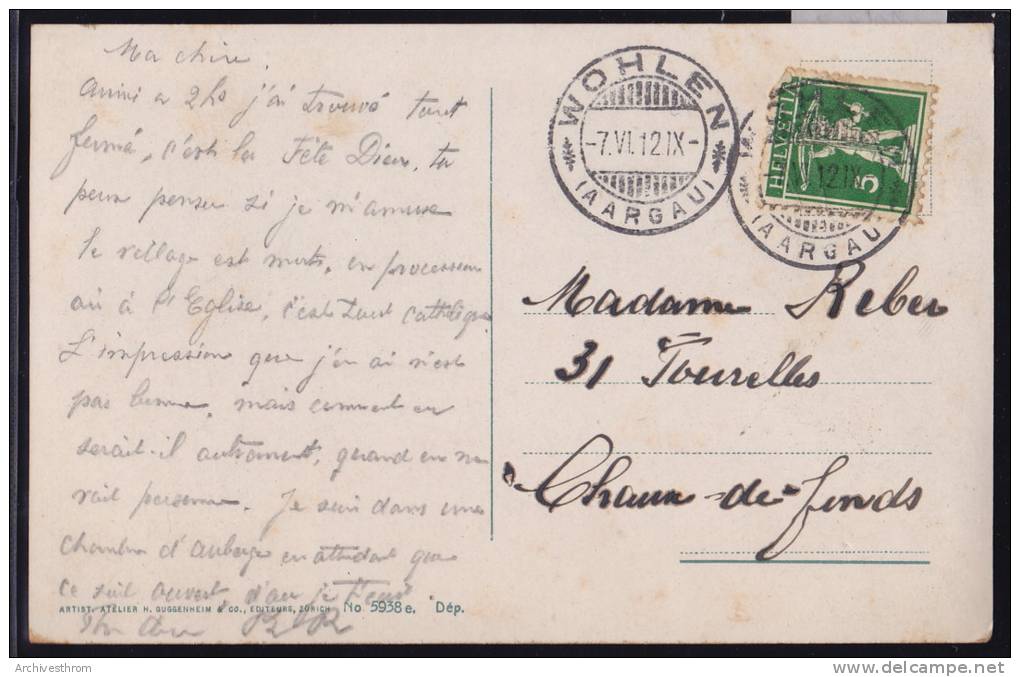 Ma chère.
Arrivé à 2hs j'ai trouvé tout
fermé, c'est la Fête Dieu, tu
peux penser si je m'amuse
le village est morts, en procession
où à l'Eglise, c'est tout catholique
L'impression que j'en ai n'est
pas bonne, mais comment en
serait-il autrement, quand on ne
voit personne. Je suis dans une
chambre d'auberge en attendant que
ce soit ouvert, d'où je t'écris
ARTIST. ATELIER H. GUGGENHEIM & CO., EDITEURS, ZÜRICH No 5938 e. Dép.
WOHLEN
-7.VI.12.IX-
(AARGAU)
HELVETIA
5
12.IX
(AARGAU
Madame Reber
31 Tourelles
Chaux-de-fonds
Archivesthrom
www.delcampe.net